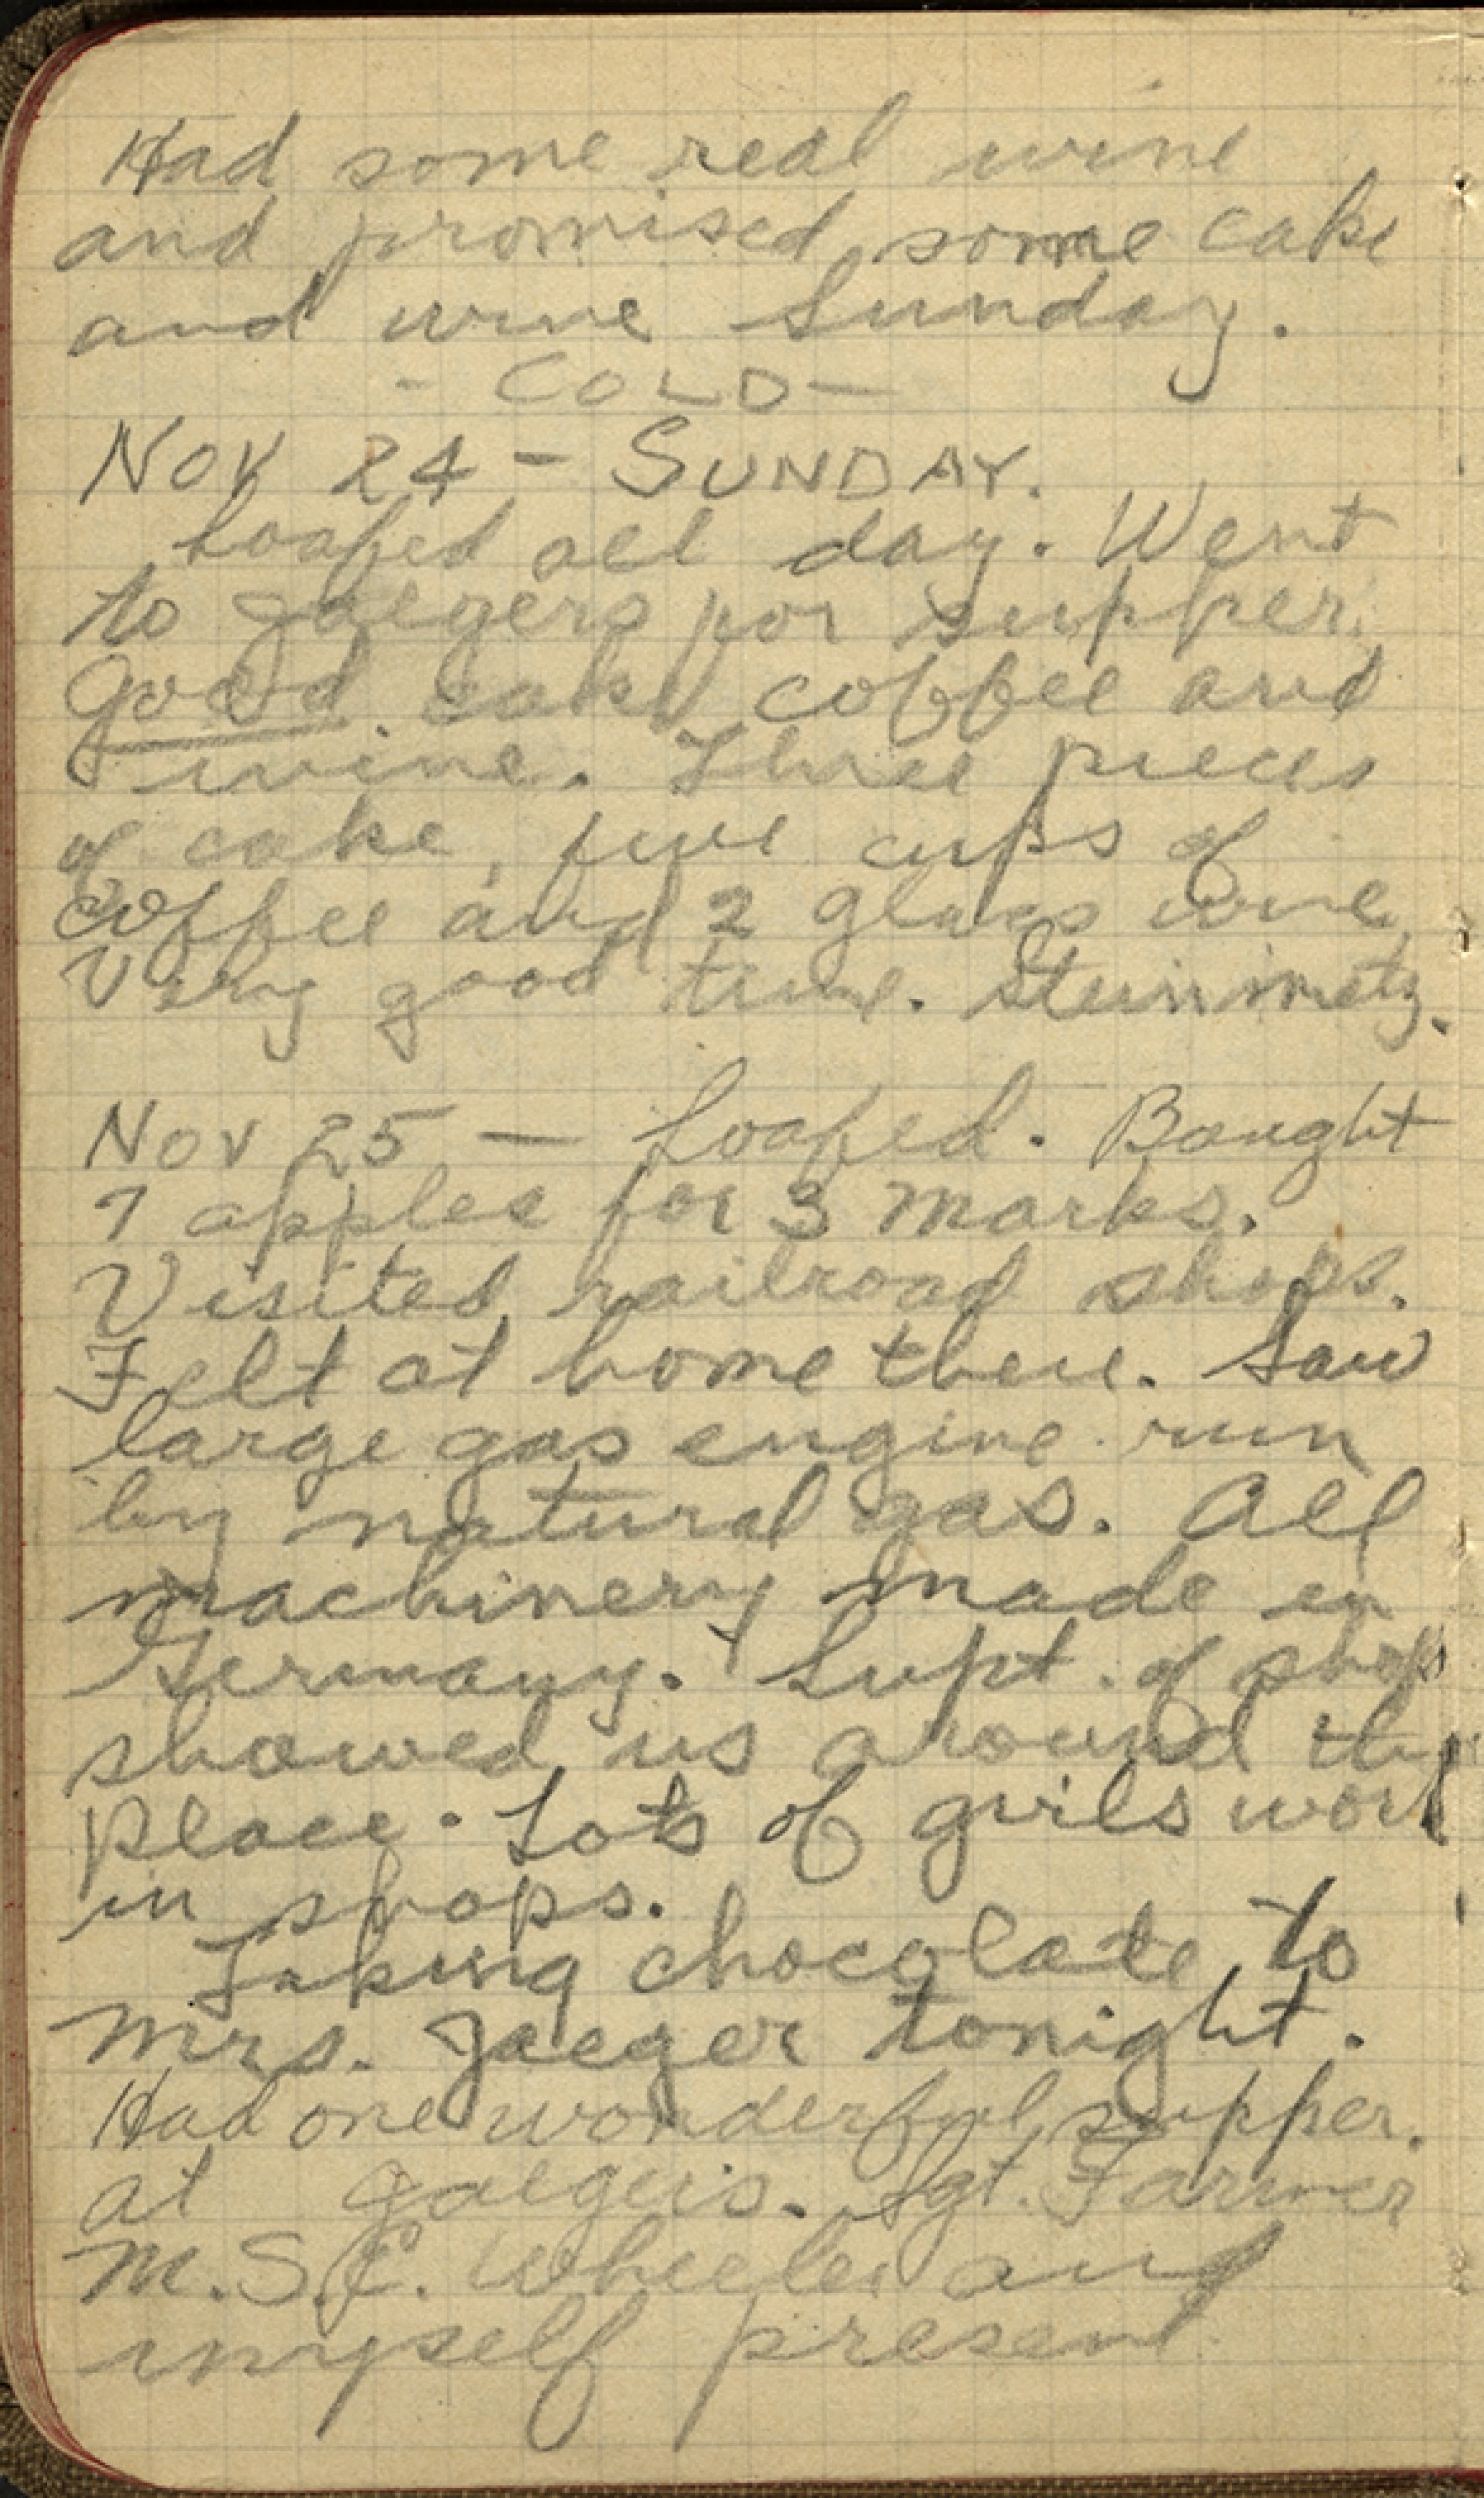 Had some real wine
and promised some cake
and wine Sunday.
- COLD -
NOV 24 - SUNDAY.
Loafed all day. Went
to Jaegers for supper.
Good cake coffee and
wine. Three pieces
of cake, five cups of
coffee and 2 glass wine
Very good time. Steinmetz.
NOV 25 - Loafed. Bought
7 apples for 3 marks.
Visited railroad shops.
Felt at home there. Saw
large gas engine run
by natural gas. All
machinery made in
Germany. Supt. of shops
showed us around the
place. Lots of girls work
in shops.
Taking chocolate to
Mrs. Jaeger tonight.
Had one wonderful supper.
at Jaegers. Sgt. Farmer
M.S.E. Wheeler and
myself present